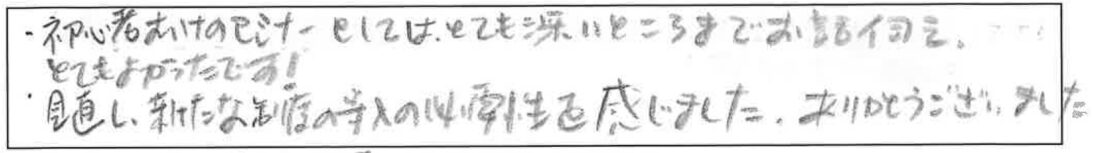 ・初心者むけのセミナーとしては、とても深いところまでお話伺え、
とてもよかったです!
・見直し、新たな制度の導入の必要性を感じました。ありがとうございました